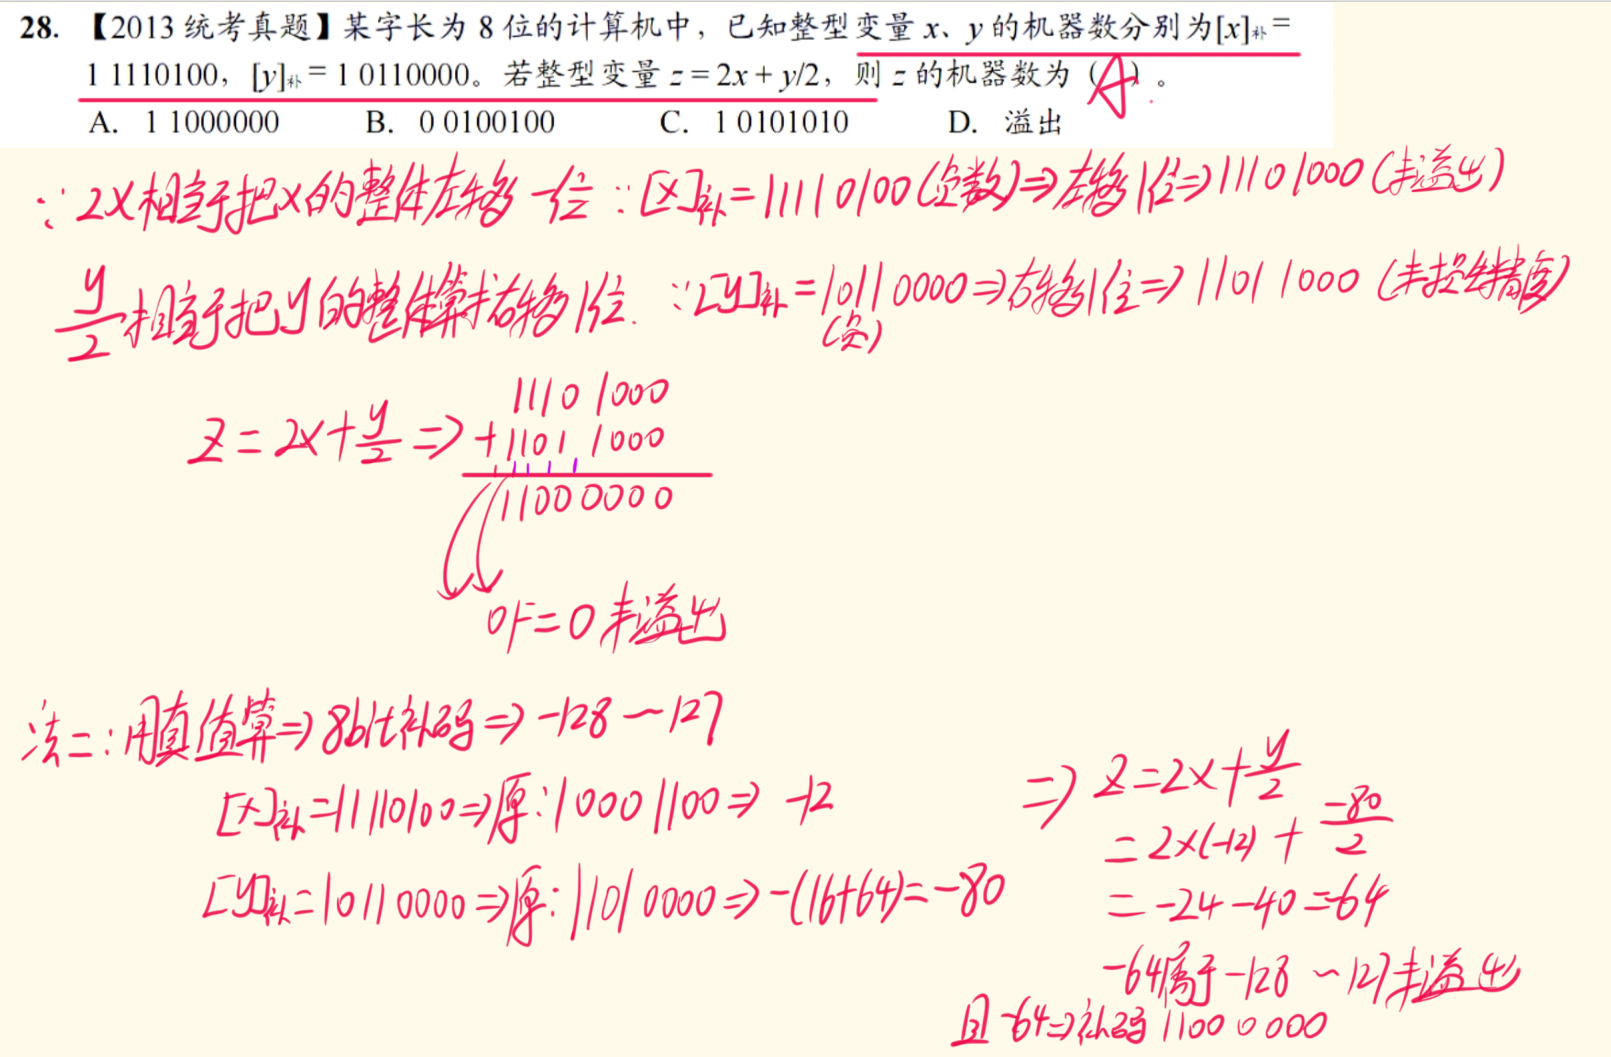 28. 【2013 统考真题】某字长为 8 位的计算机中，已知整型变量 x、y 的机器数分别为[x]补=
1 1110100，[y]补= 1 0110000。若整型变量 z = 2x + y/2，则 z 的机器数为（A）。
A. 1 1000000 B. 0 0100100 C. 1 0101010 D. 溢出
∵ 2X相当于把X的整体左移一位 ∵[X]补=11110100(负数)⇒左移1位⇒11101000(未溢出)
y/2 相当于把y的整体算术右移1位. ∵[y]补=10110000⇒右移1位⇒11011000(未损失精度)
(负)
1110 1000
Z=2X+y/2 ⇒ +1101 1000
1100 0000
OF=0 未溢出
法二:用真值算⇒8bit补码⇒-128~127
[X]补=11110100⇒原:10001100⇒-12
[y]补=10110000⇒原:11010000⇒-(16+64)=-80
⇒ Z=2X+y/2
=2×(-12)+-80/2
=-24-40=-64
-64属于-128~127未溢出
且-64⇒补码11000000